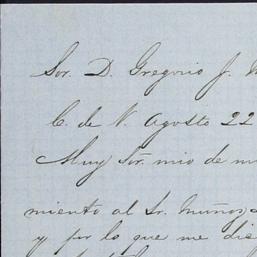 Sor. D. Gregorio J.
C. de N. Agosto 22
Muy Sor. mio de
miento al Sr. Muñoz
y por lo que me